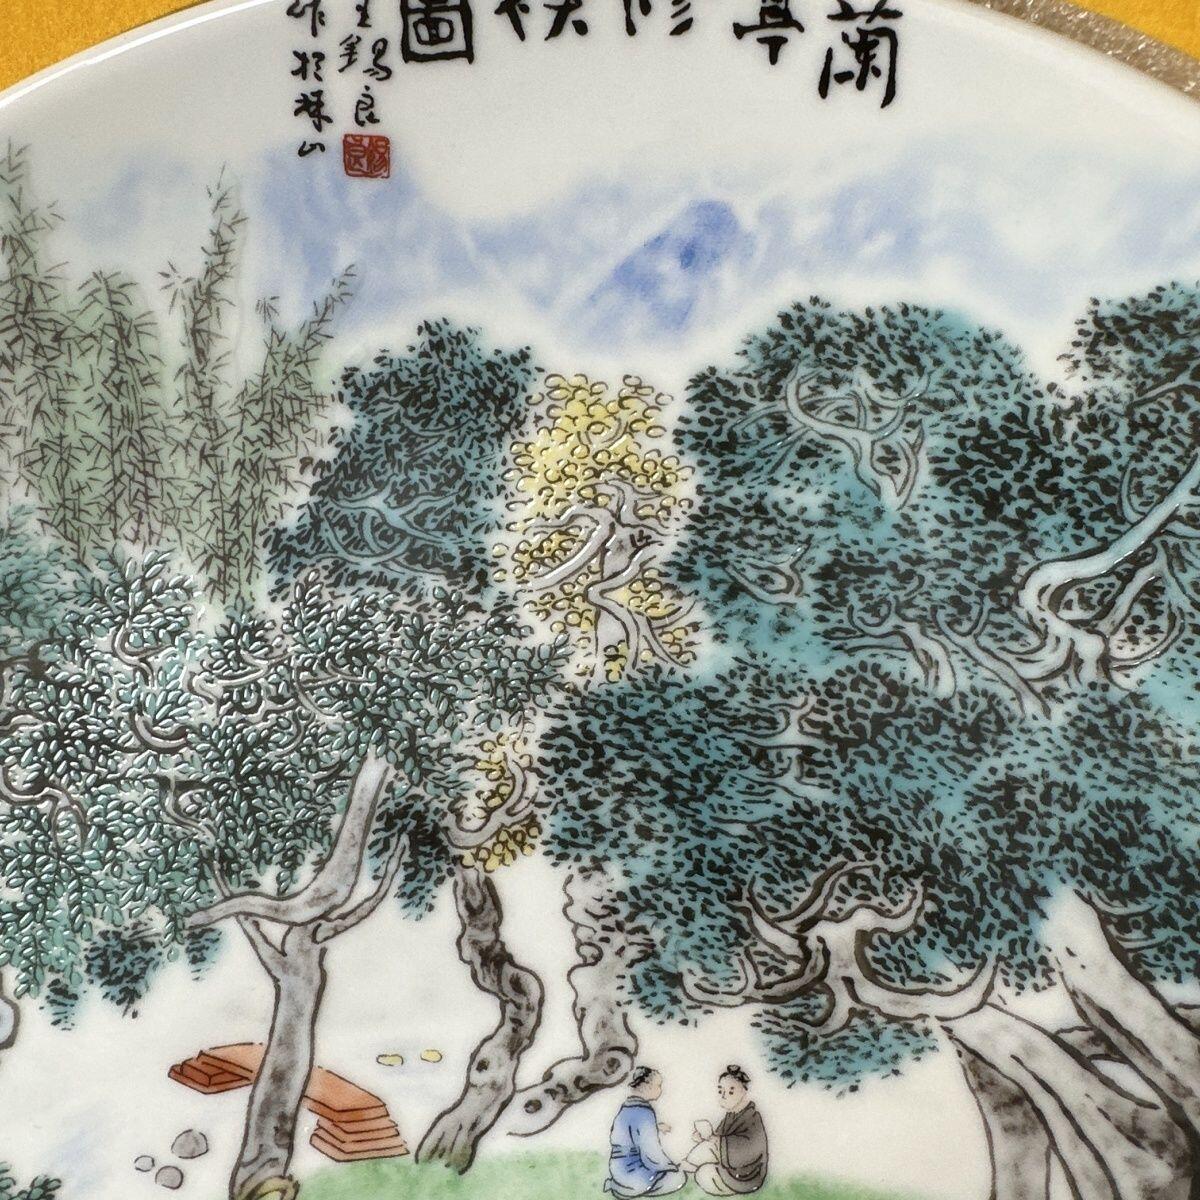 蘭亭修禊圖
王錫良
作於珠山
錫良